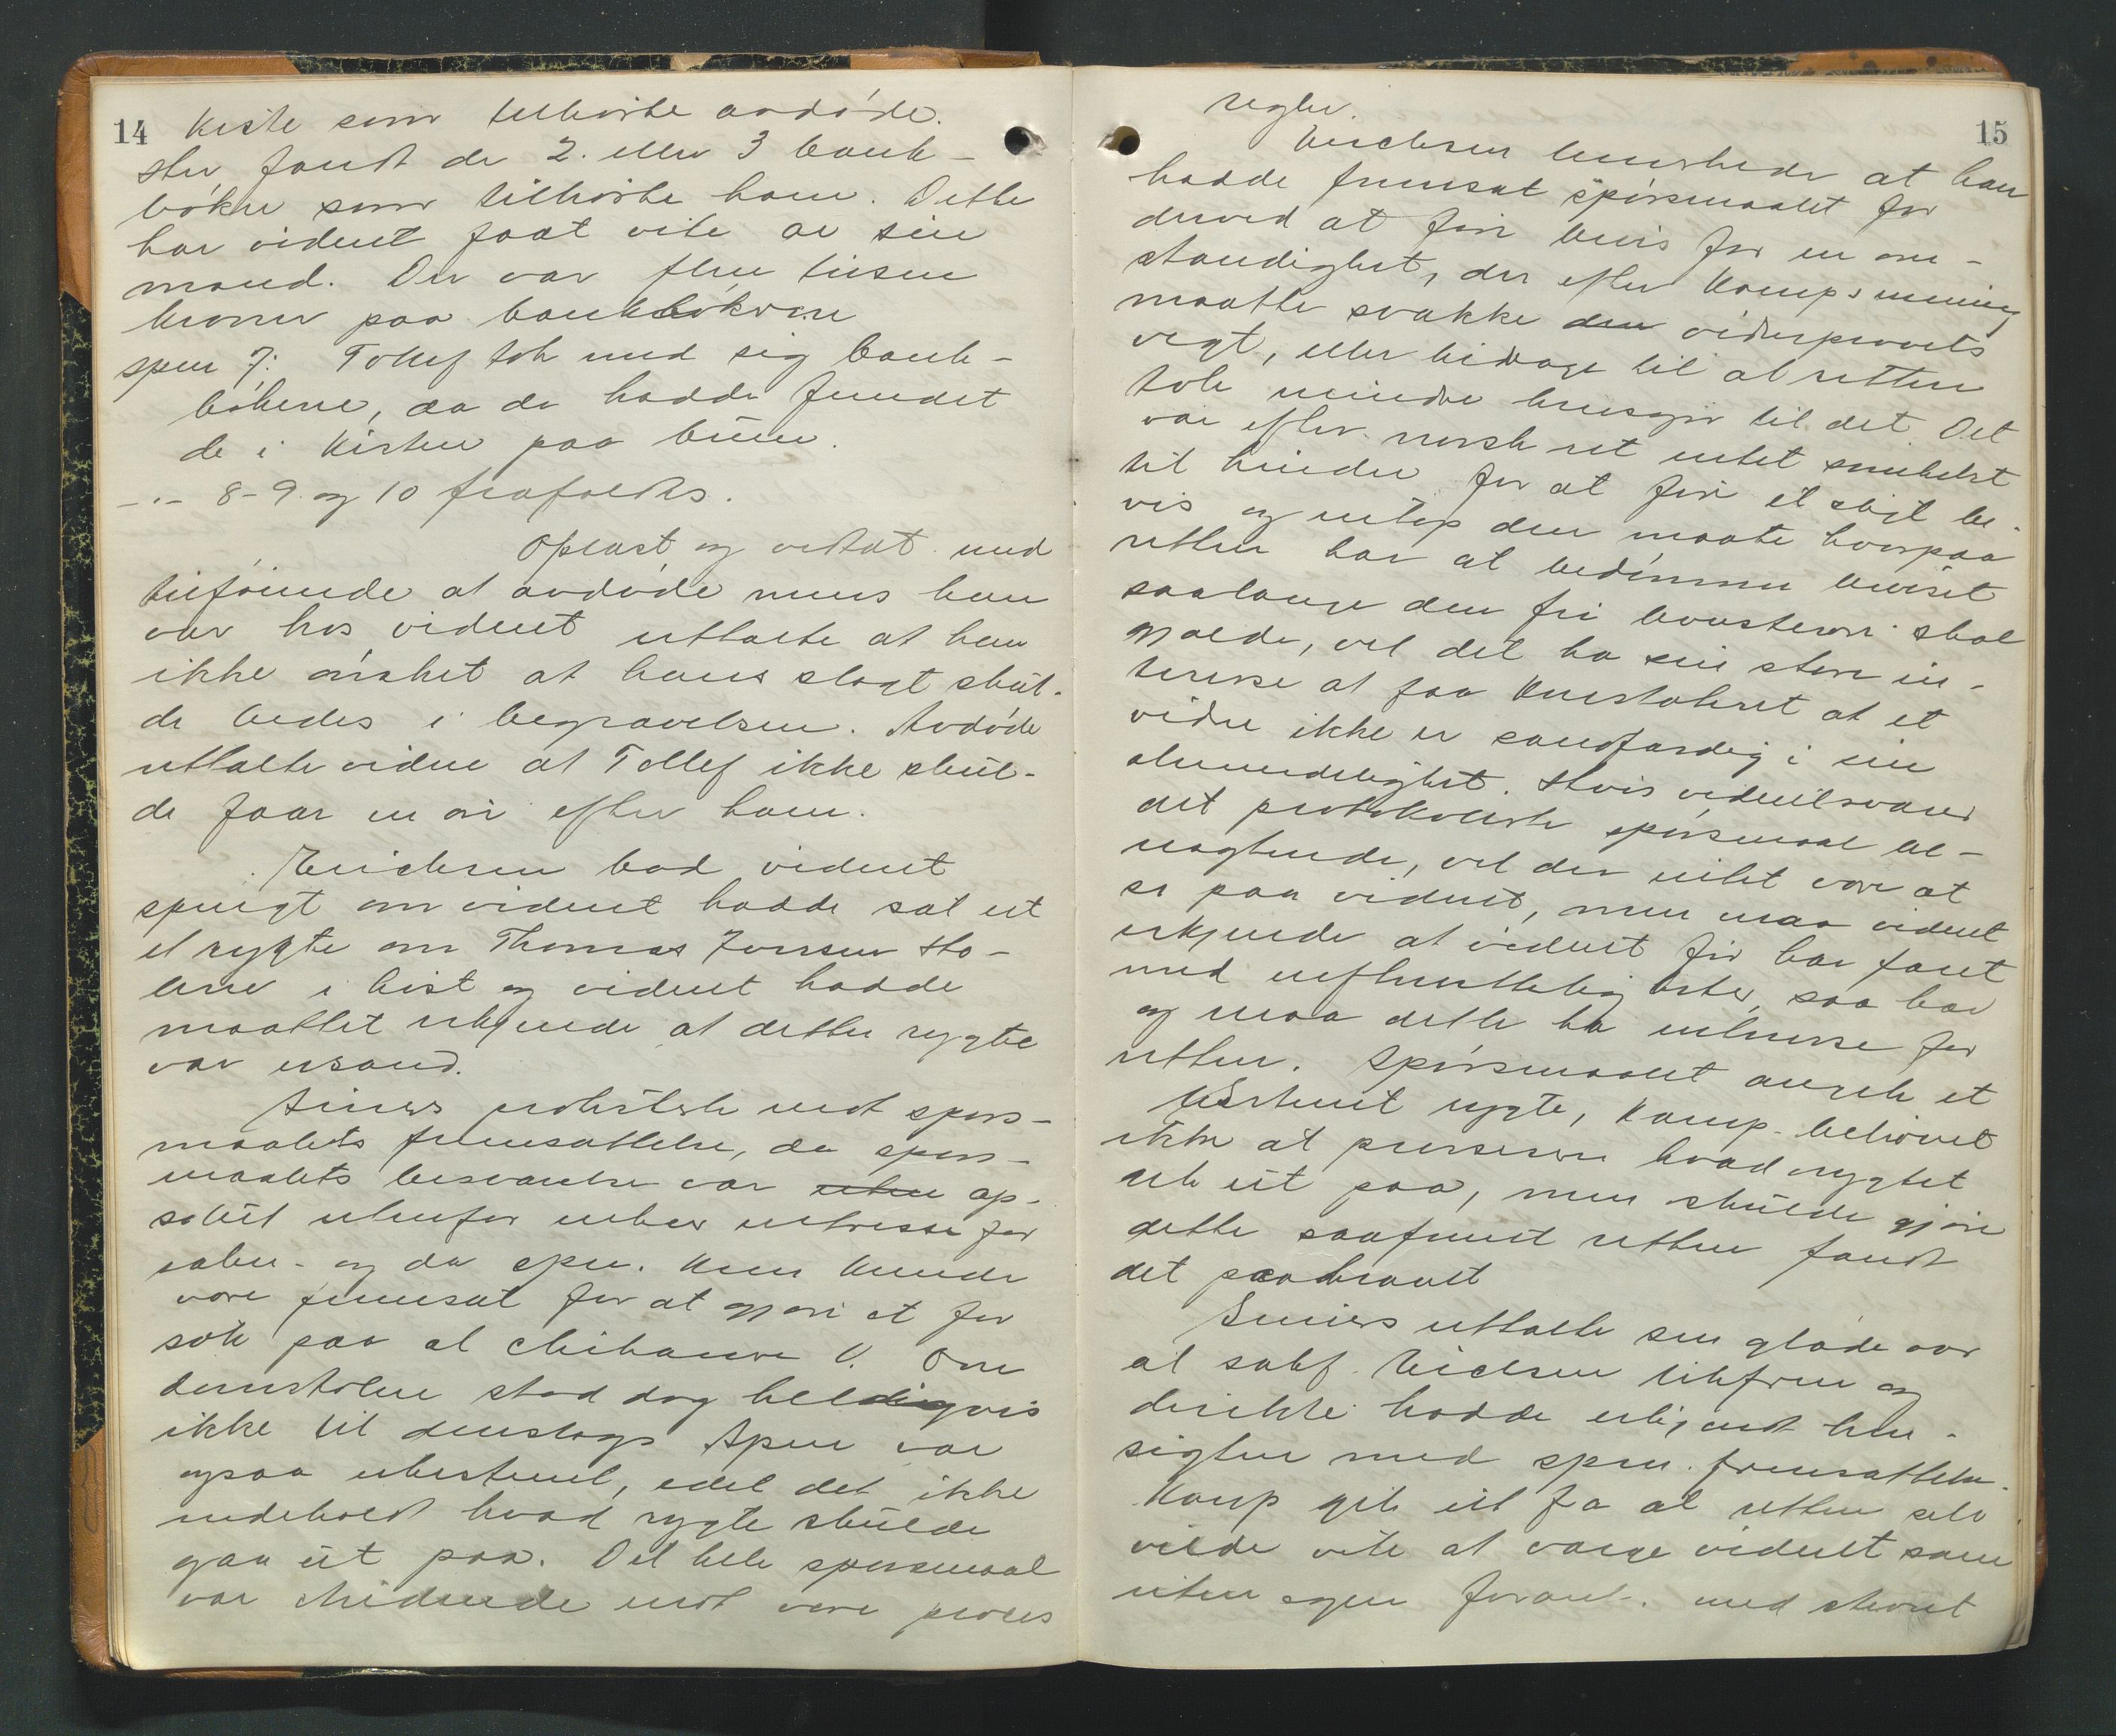 14 kiste som tilhørte avdøde.
Her fandt de 2. eller 3 bank-
bøker som tilhørte ham. Dette
har vidnet faat vite av sin
mand. Der var flere tusen
kroner paa bankbøkerne
spm 7: Tollef tok med sig bank-
bøkene, da de hadde fundet
de i kisten paa buen.
-"- 8-9 og 10 frafaldts.
Oplæst og vedtat med
tilføiende at avdøde mens han
var hos vidnet uttalte at han
ikke ønsket at hans slegt skul-
de bedes i begravelsen. Avdøde
uttalte videre at Tollef ikke skul-
de faar en øre efter ham.
Erichsen bad vidnet
spurgt om vidnet hadde sat ut
et rygte om Thomas Jonsen Ho-
lene i høst og vidnet hadde
maattet erkjende at dette rygte
var usand.
protesterte mot spørs-
maalets fremsættelse, da spørs-
maalets besvarelse var uten ap-
solut utenfor enhver intresse for
saken - og da spm. kun kunde
være fremsat for at gjøre et for
søk paa at chikanere V. Ove
domstolene stod dog heldigvis
ikke til denslags Spm var
ogsaa ubestemt, idet det ikke
indeholdt hvad rygte skulde
gaa ut paa. Det hele spørsmaal
var stridende mot vore proces
15
regler.
Erichsen bemerkede at han
hadde fremsat spørsmaalet for
derved at føre bevis for en om-
standighet, der efter Komps mening
maatte svække den vidneprovets
vegt, eller bidrage til at retten
tok mindre hensyn til det. Det
var efter norsk ret intet somhelst
til hinder for at føre et sligt be-
vis og netop den maate hvorpaa
retten har at bedømme beviset
saalange den fri bevisteori skal
gjælde, vil det ha sin store in-
teresse at faa konstateret at et
vidne ikke er sandfærdig i sin
almindelighet. Hvis vidnet svarer
det protokollerte spørsmaal be-
nægtende, vil der intet være at
si paa vidnet, men maa vidnet
erkjende at vidnet før har faret
med uefterrettelig , saa bør
og maa dette ha interesse for
retten. Spørsmaalet angik et
bestemt rygte, Komp. behøvet
ikke at presisere hvad rygtet
gik ut paa, men skulde gjøre
dette saafremt retten fandt
det paakrævet
uttalte sin glæde over
at sakf. Erichsen likefrem og
direkte hadde erkjendt hen-
sigten med spm. fremsættelse.
Komp gik ut fa at retten selv
vilde vite at værge vidnet som
uten egen forant. med stevnet